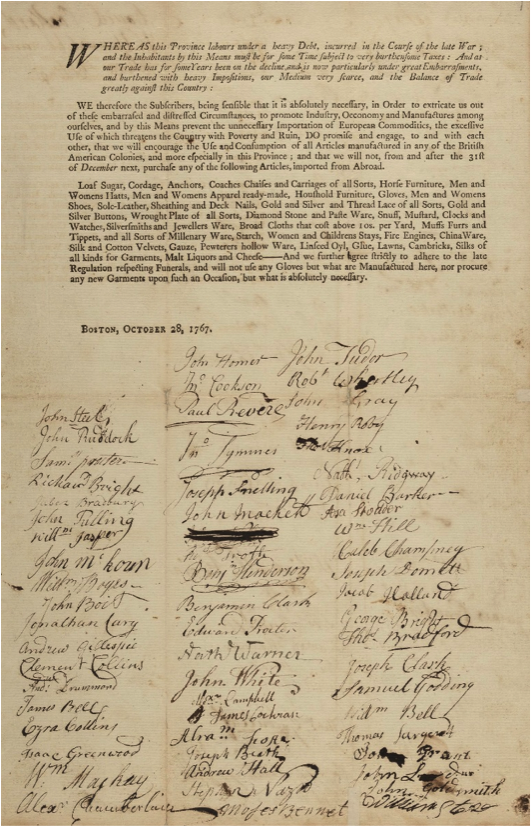 WHEREAS this Province labours under a heavy Debt, incurred in the Course of the late War;
and the Inhabitants by this Means must be for some Time subject to very burthensome Taxes: And as
our Trade has for some Years been on the decline, and is now particularly under great Embarrassments,
and burthened with heavy Impositions, our Medium very scarce, and the Balance of Trade
greatly against this Country:
WE therefore the Subscribers, being sensible that it is absolutely necessary, in Order to extricate us out
of these embarrased and distressed Circumstances, to promote Industry, Oeconomy and Manufactures among
ourselves, and by this Means prevent the unnecessary Importation of European Commodities, the excessive
Use of which threatens the Country with Poverty and Ruin, DO promise and engage, to and with each
other, that we will encourage the Use and Consumption of all Articles manufactured in any of the British
American Colonies, and more especially in this Province; and that we will not, from and after the 31st
of December next, purchase any of the following Articles, imported from Abroad.
Loaf Sugar, Cordage, Anchors, Coaches Chaises and Carriages of all Sorts, Horse Furniture, Men and
Womens Hatts, Men and Womens Apparel ready-made, Houshold Furniture, Gloves, Men and Womens
Shoes, Sole-Leather, Sheathing and Deck Nails, Gold and Silver and Thread Lace of all Sorts, Gold and
Silver Buttons, Wrought Plate of all Sorts, Diamond Stone and Paste Ware, Snuff, Mustard, Clocks and
Watches, Silversmiths and Jewellers Ware, Broad Cloths that cost above 10s. per Yard, Muffs Furrs and
Tippets, and all Sorts of Millenary Ware, Starch, Women and Childrens Stays, Fire Engines, China Ware,
Silk and Cotton Velvets, Gauze, Pewterers hollow Ware, Linseed Oyl, Glue, Lawns, Cambricks, Silks of
all kinds for Garments, Malt Liquors and Cheese——And we further agree strictly to adhere to the late
Regulation respecting Funerals, and will not use any Gloves but what are Manufactured here, nor procure
any new Garments upon such an Occasion, but what is absolutely necessary.
BOSTON, OCTOBER 28, 1767.
John Steel
John Ruddock
Richard Bright
John Pulling
Willm Jasper
John McKoun
John Boit
Jonathan Cary
Andrew Gillespie
Clement Collins
Andw Drummond
James Bell
Ezra Collins
Isaac Greenwood
Wm Mackay
Alexr Chamberlain
John Homer
Jno Cookson
Paul Revere
Jno Symmes
Joseph Snelling
John Mackett
Benjn Henderson
Benjamin Clark
Edward Foster
North Warner
John White
Campbell
James Cochran
Joseph
Andrew Hall
Moses Bennet
John Tudor
Robt Whortley
John Gray
Henry Roby
Knox
Nathl Ridgway
Daniel Barker
Asa Stodder
Wm Hill
Caleb Champney
Joseph Dorrett
Jacob Holland
George Bright
Thos Bradford
Joseph Clark
Samuel Gooding
Willm Bell
Thomas Sargent
Grant
John Goldsmith
William